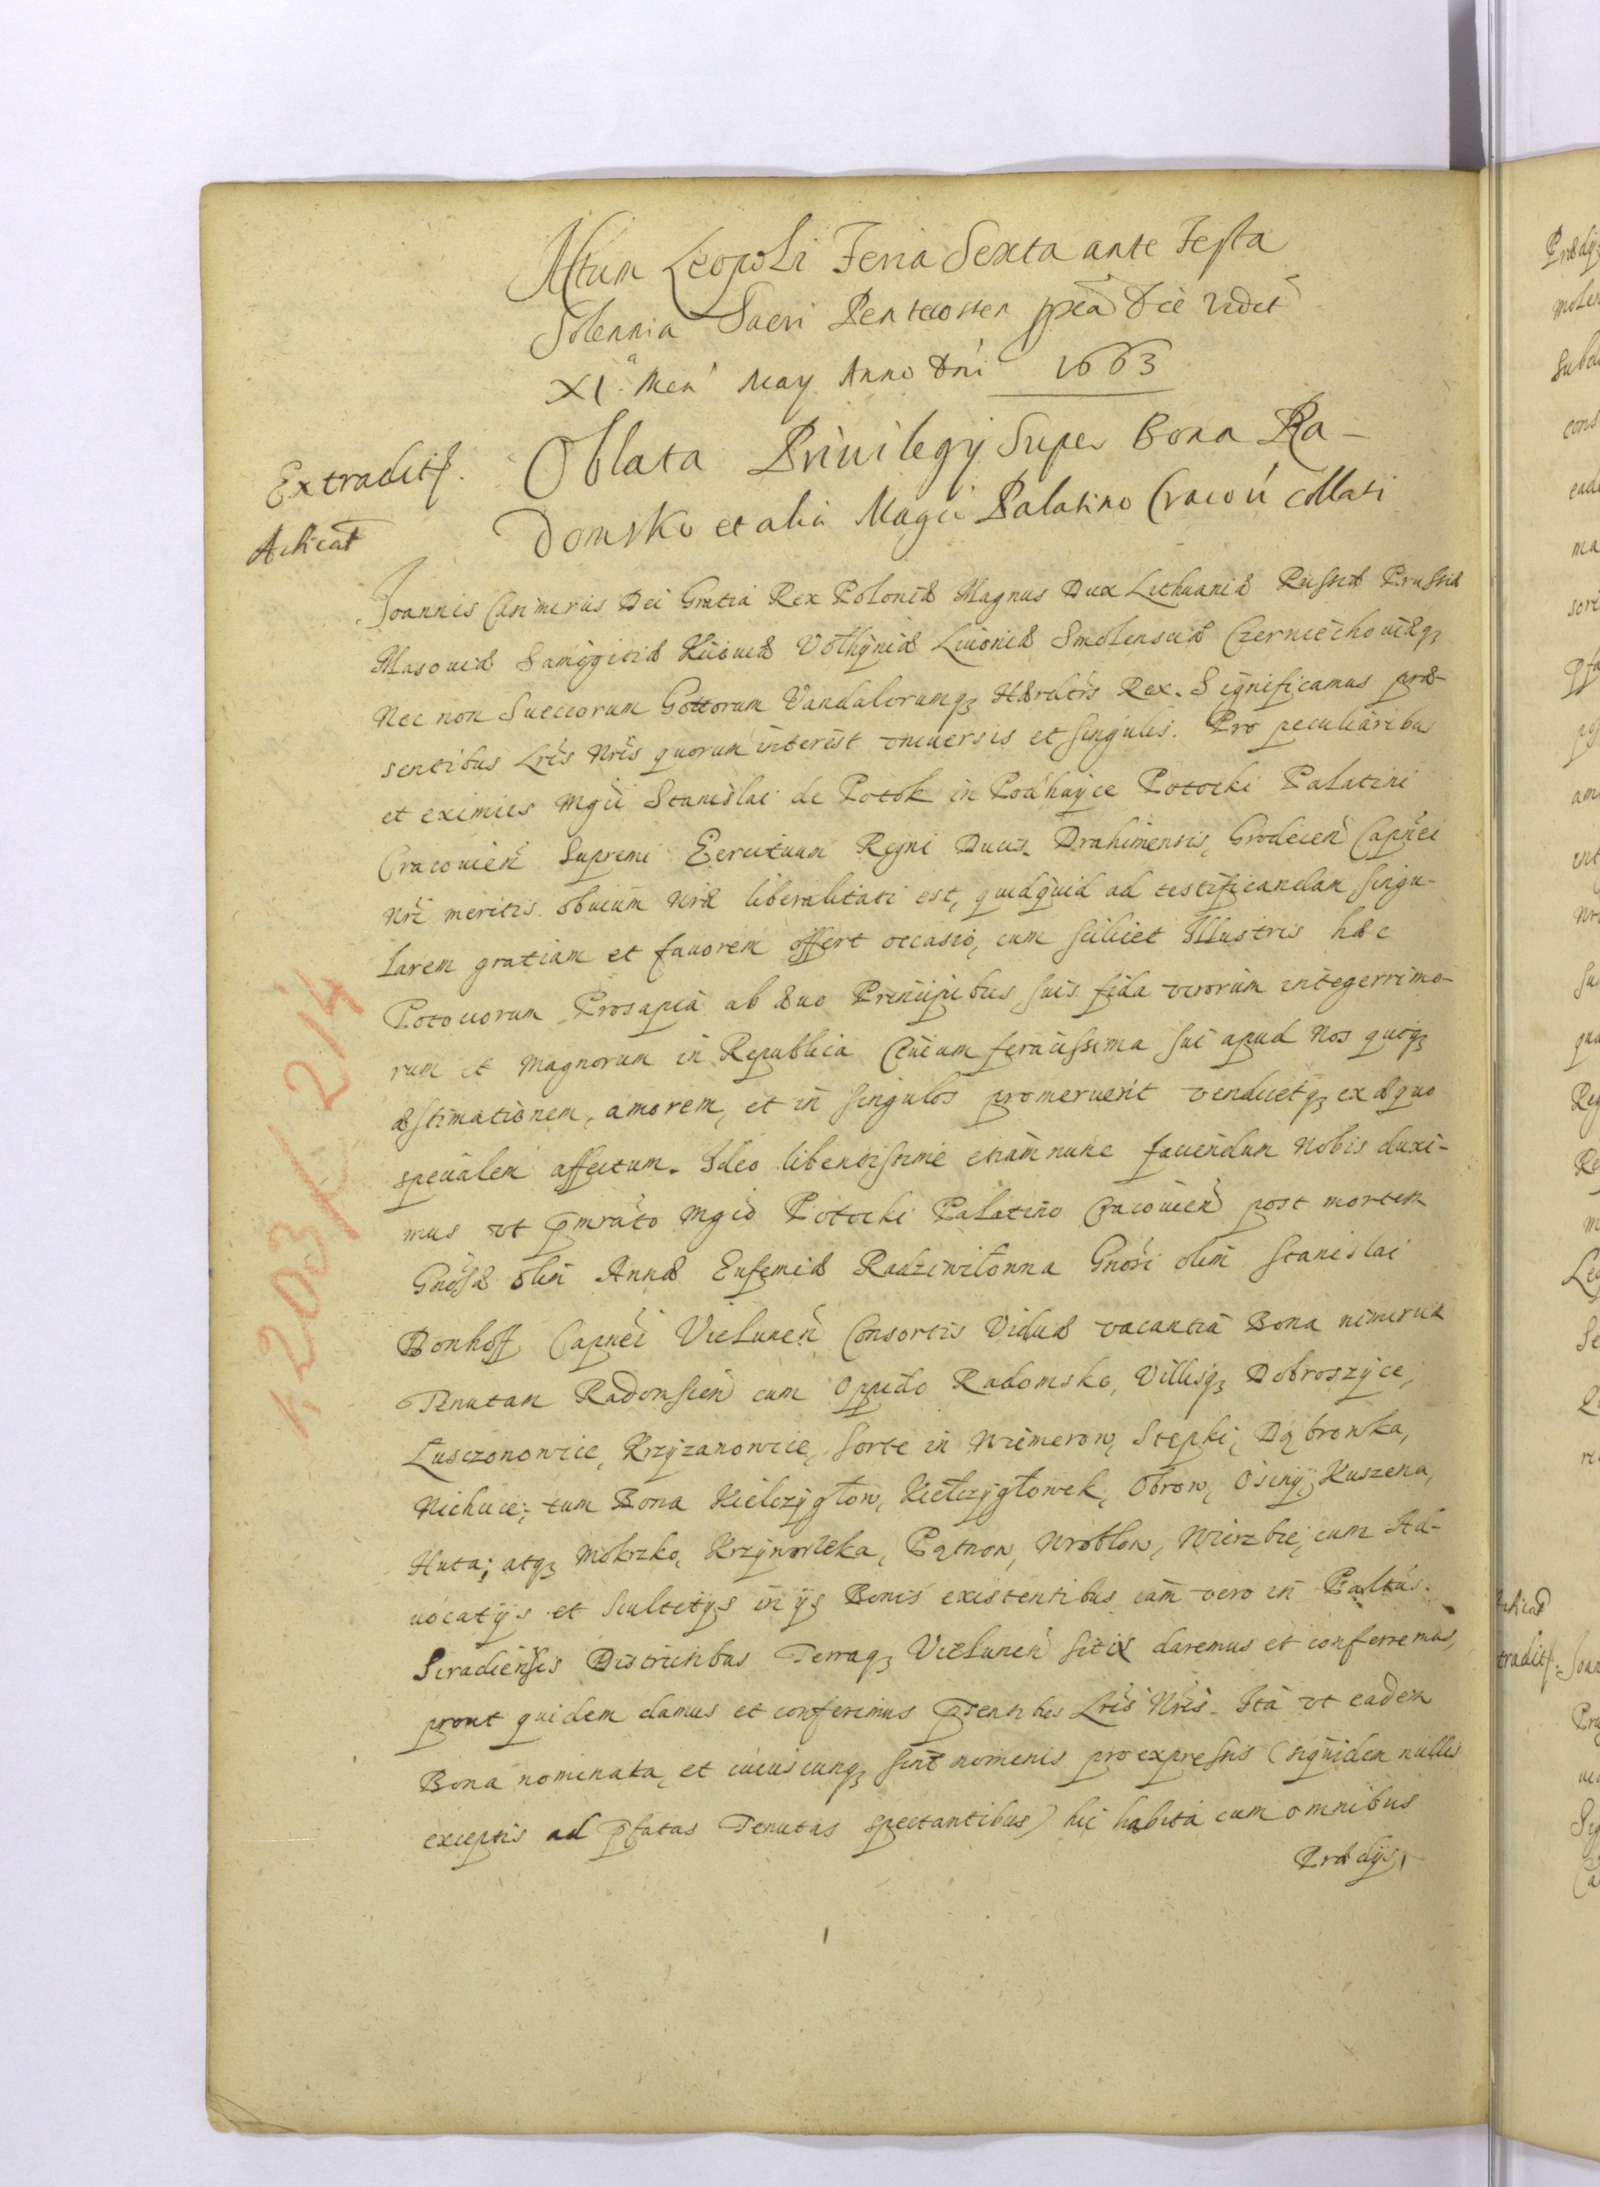 Actum Leopoli Feria Sexta ante Festa
Solennia Sacri Pentecosten ppiã Die videt
XI.ª Men' May Anno Dni 1663
Extradit.
Oblata Priuilegÿ Super Bona Ra-
Acticat
Domsko et alia Magci Palatino Cracoń collati
Joannis Casimirus Dei Gratia Rex Poloniæ Magnus Dux Lithuaniæ Russiæ Prussiæ
Masouiæ Samogitiæ Kiiouiæ Volhÿniæ Liuoniæ Smolensciæ Czerniechouiæq3
Nec non Sueccorum Gottorum Vandalorumq3 Hæredrs Rex. Significamus præ-
sentibus Lris Nris quorum interest vniuersis et singulis. Pro peculiaribus
et eximies Mgci Stanislai de Potok in Podhayce Potocki Palatini
Cracouień Supremi Exercituum Regni Ducis. Drahimensis, Grodeceń Capnei
Nri meritis obuium Nræ liberalitati est, quidquid ad testificandam singu-
larem gratiam et fauorem offert occasio, cum scilicet Illustris hæc
Potociorum Prosapia ab æuo Principibus suis fida virorum integerrimo-
rum et Magnorum in Republica Ciuium feracissima sui apud Nos quoq3
æstimationem, amorem, et in singulos promeruerit vendicetq3 ex æquo
specialem affectum. Ideo libentissime etiam nunc fauendum Nobis duxi-
mus vt pmrato Mgco Potocki Palatino Cracouień post mortem
Gnosæ olim Annæ Eufemiæ Radziwiłonna Gnosi olim Stanislai
Donhoff Capnei Vielunen Consortis Viduæ vacantia Bona nimirum
Tenutam Radomscień cum Oppido Radomsko, Villisq3 Dobroszÿce,
Lusczonowice, Krzÿzanowice, sorte in Wiemerow, Stepki, Dąbrowka,
Niehcice; tum Bona Kiełczÿgłow, Kiełczÿgłowek, Obrow, Osinÿ, Kuszena,
Huta; atq3 Mokrzko, Krzÿworzeka, Pątnow, Wroblow, Wierzbie, cum Ad-
uocatÿs et Scultetÿs in ÿs Bonis existentibus iam vero in Paltus.
Siradiensis Districtibus Terraq3 Vielunen sitis daremus et conferremus,
prout quidem damus et conferimus psentibus Lris Nris. Ita vt eadem
Bona nominata, et cuiuscunq3 sint nominis pro expressis (siquidem nullis
exceptis ad pfatas Tenutas spectantibus) hic habita cum omnibus
Prædÿs,
1203/X 214